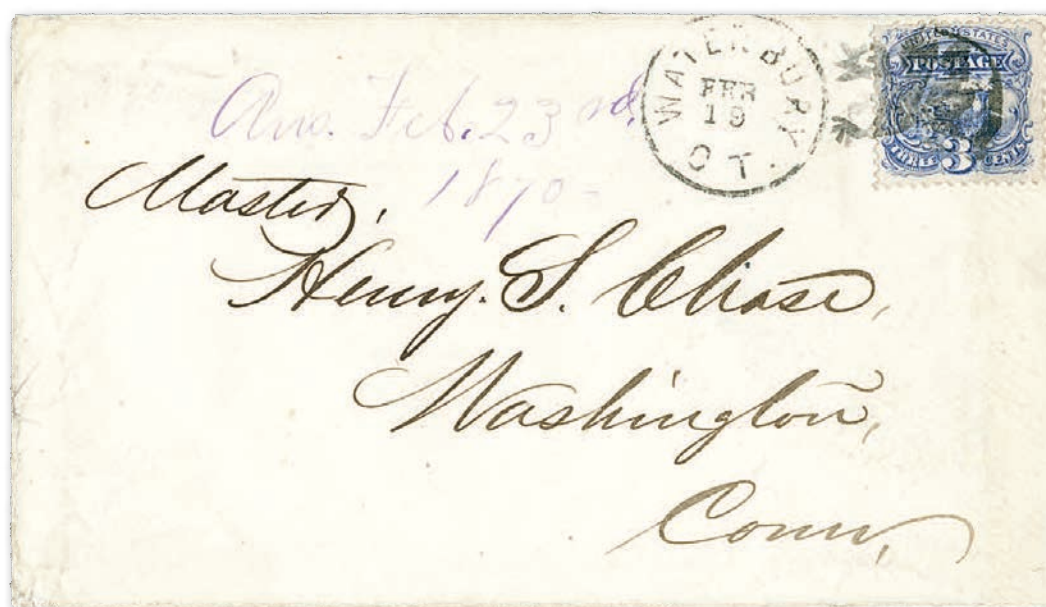 Ans. Feb. 23rd,
1870-
WATERBURY. CT.
FEB
19
UNITED STATES
POSTAGE
THREE 3 CENTS
Master,
Henry. S. Chase,
Washington,
Conn,